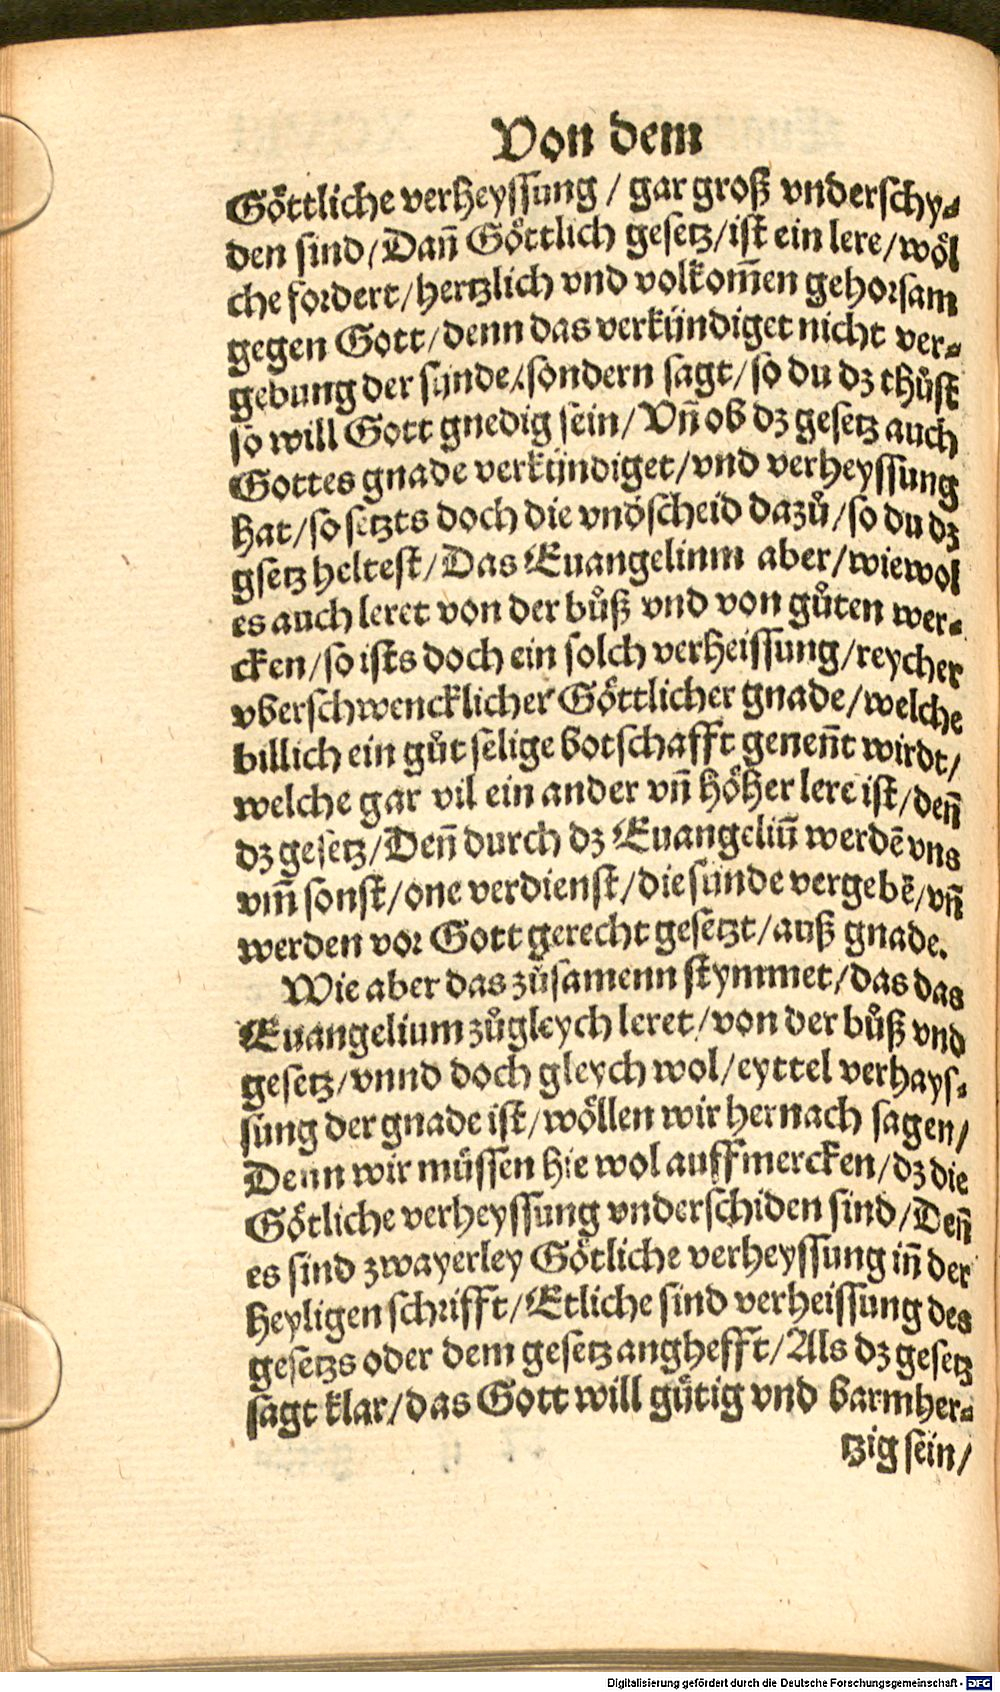 Von dem
Göttliche verheyssung / gar groß vnderschy⸗
den sind/Dañ Göttlich gesetz/ist ein lere/wöl
che fordert/hertzlich vnd volkom̃en gehorsam
gegen Gott/denn das verkündiget nicht ver⸗
gebung der sünde/sondern sagt/so du dz thůst
so will Gott gnedig sein/Vñ ob dz gesetz auch
Gottes gnade verkündiget/vnd verheyssung
hat/so setzts doch die vnd̕scheid dazů/so du dz
gsetz heltest/Das Euangelinm aber/wiewol
es auch leret von der bůß vnd von gůten wer⸗
cken/so ists doch ein solch verheissung/reycher
vberschwencklicher Göttlicher gnade/welche
billich ein gůt selige botschafft geneñt wirdt/
welche gar vil ein ander vñ höher lere ist/deñ
dz gesetz/Deñ durch dz Euangeliũ werdẽ vns
vm̃ sonst/one verdienst/die sünde vergebẽ/vñ
werden vor Gott gerecht gesetzt/auß gnade.
Wie aber das zůsamenn stymmet/das das
Euangelium zůgleych leret/von der bůß vnd
gesetz/vnnd doch gleych wol/eyttel verhays⸗
sung der gnade ist/wöllen wir hernach sagen/
Denn wir müssen hie wol auffmercken/dz die
Götliche verheyssung vnderschiden sind/Deñ
es sind zwayerley Götliche verheyssung iñ der
heyligen schrifft/Etliche sind verheissung des
gesetzs oder dem gesetz anghefft/Als dz gesetz
sagt klar/das Gott will gütig vnd barmher⸗
tzig sein/
Digitalisierung gefördert durch die Deutsche Forschungsgemeinschaft - DFG